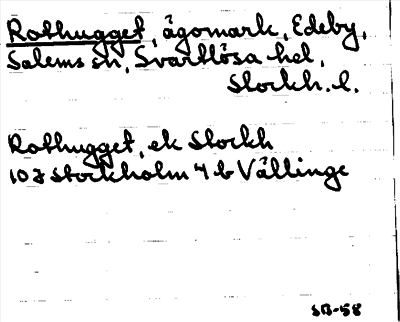 Rothugget, ägomark, Edeby,
Salems sn, Svartlösa hd,
Stockh. l.
Rothugget, ek Stockh
10 J Stockholm 7 b Vällinge
SB-58